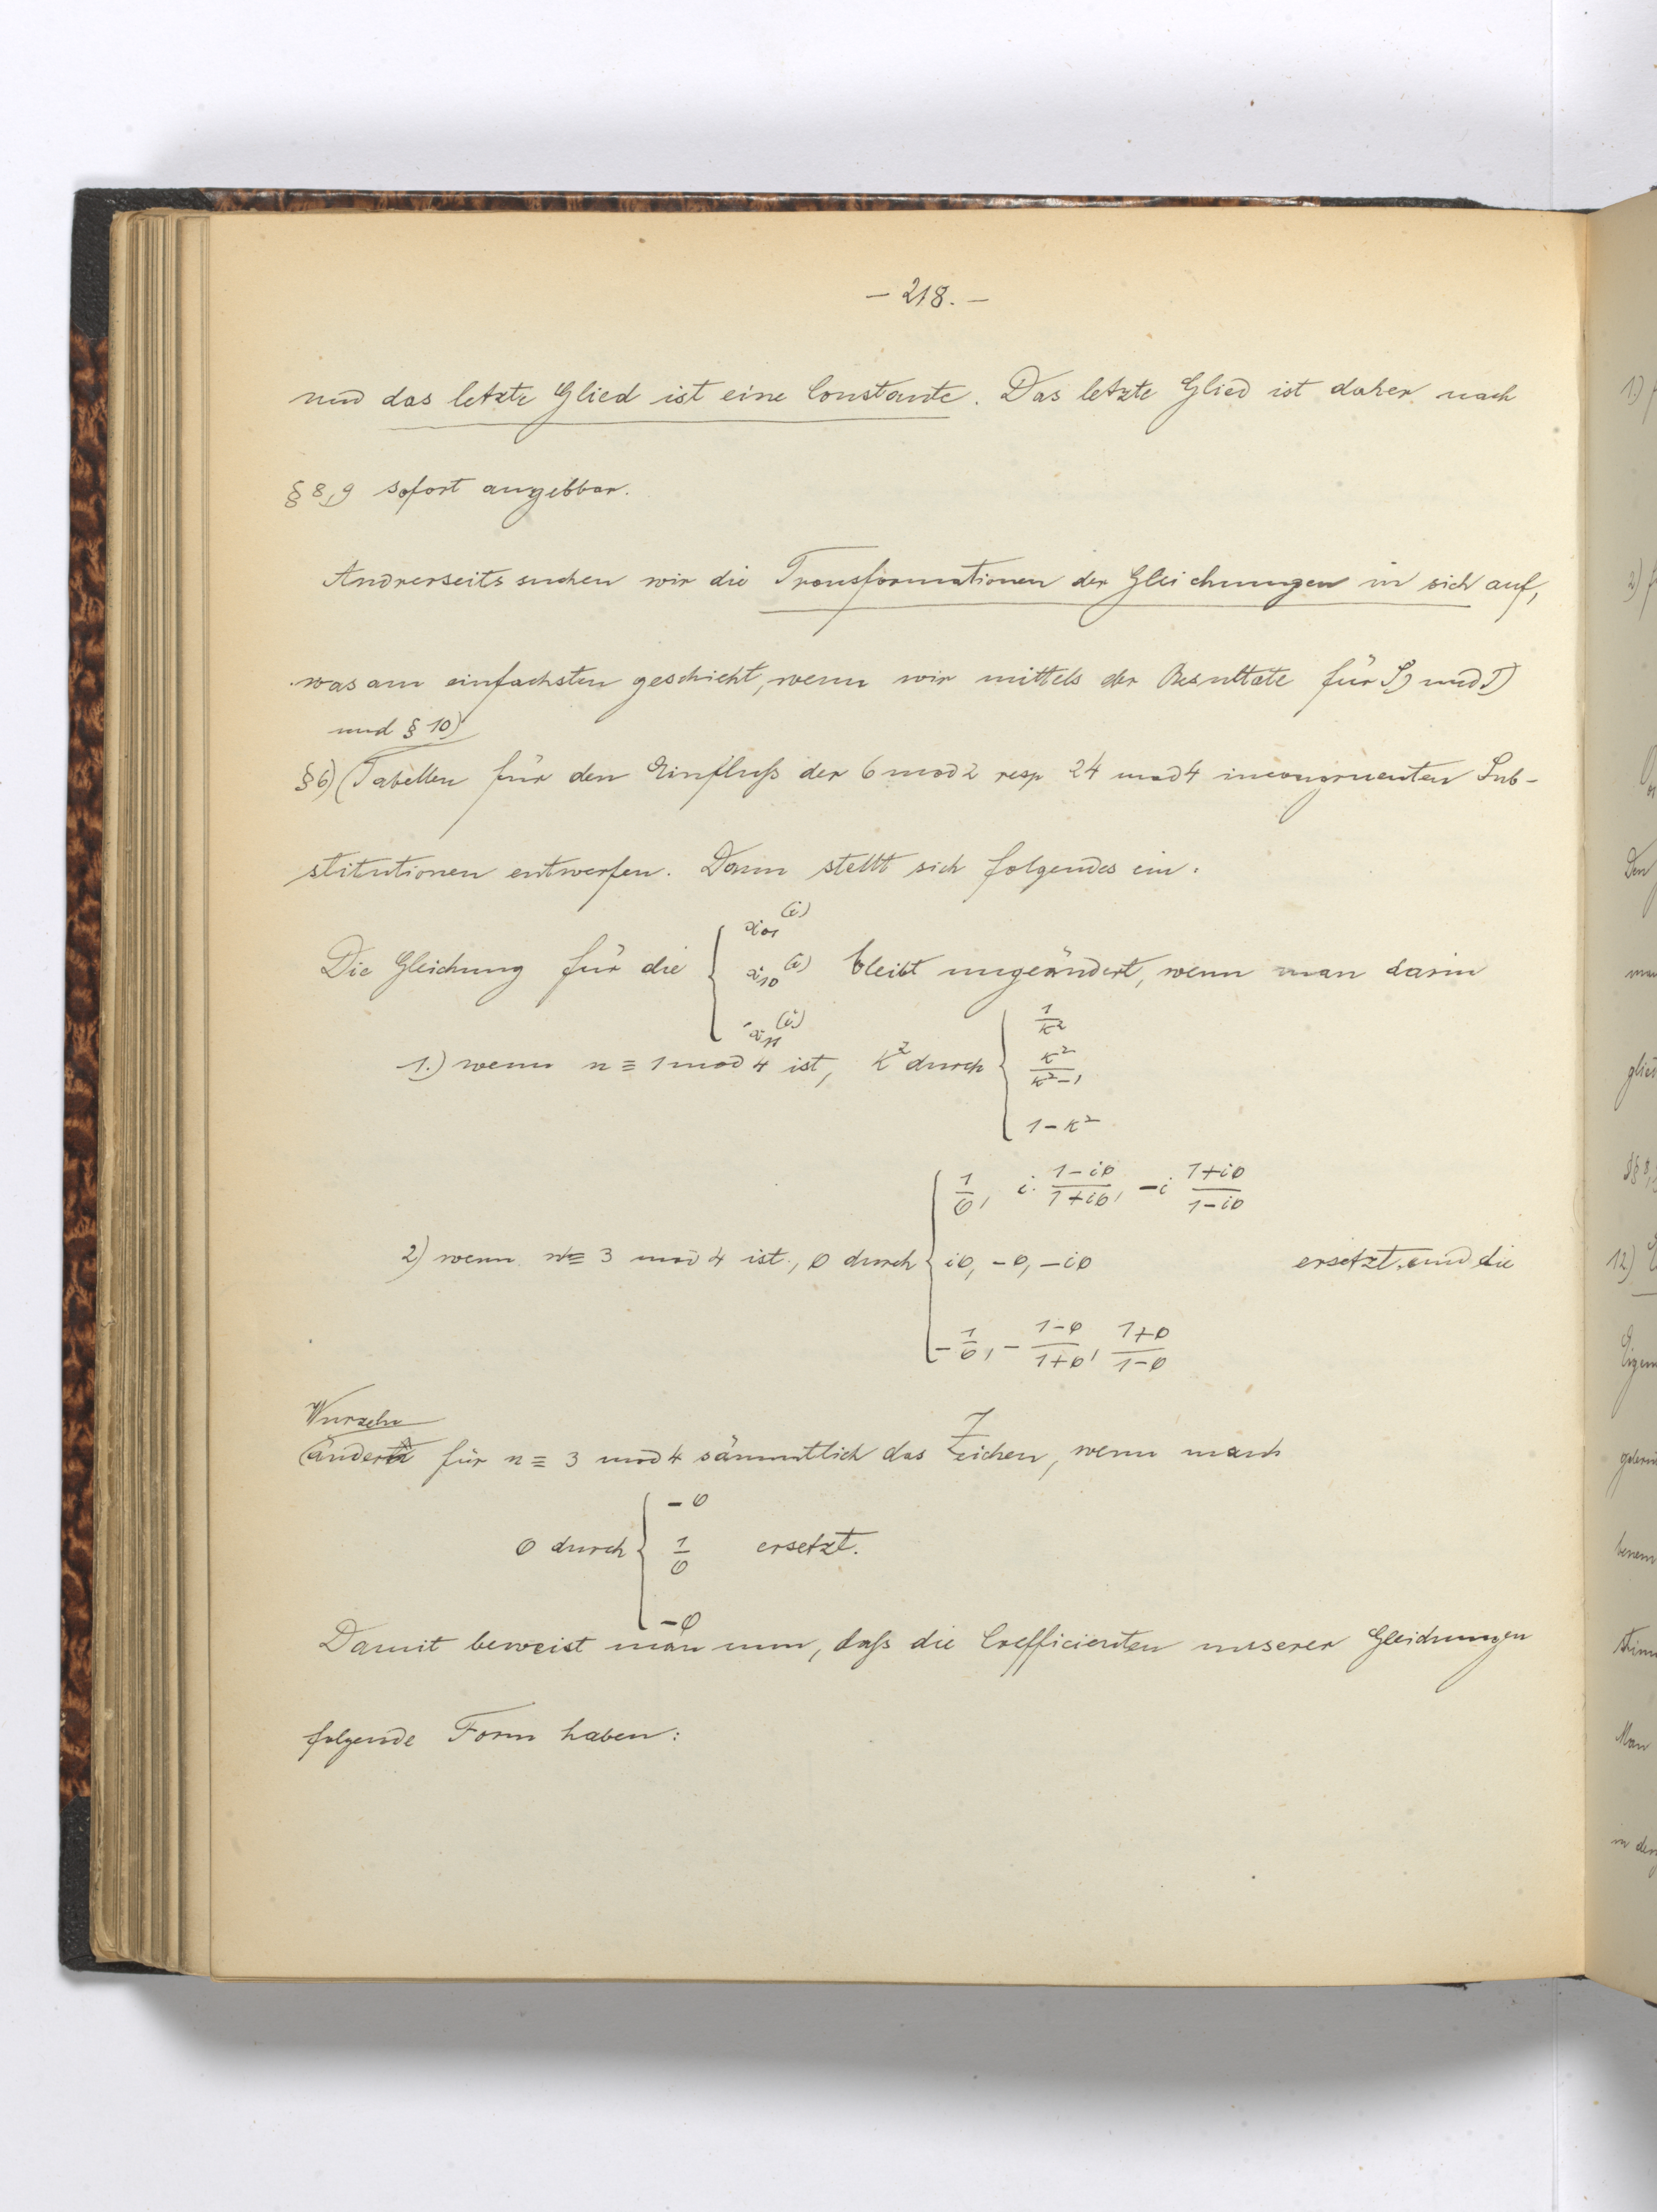 – 218. –
und das letzte Glied ist eine Constante. Das letzte Glied ist daher nach
§ 8, 9 sofort angebbar.
Andrerseits suchen wir die Transformationen der Gleichungen in sich auf,
was am einfachsten geschieht, wenn wir mittels der Resultate für S) und T)
und § 10)
§ 6) (Tabellen für den Einfluß der 6 mod 2 resp 24 mod 4 incongruenten Sub-
stitutionen entwerfen. Dann stellt sich folgendes ein:
x₀₁⁽ⁱ⁾
Die Gleichung für die { x₁₀⁽ⁱ⁾ bleibt ungeändert, wenn man darin
x₁₁⁽ⁱ⁾
1/κ²
1.) wenn n ≡ 1 mod 4 ist, k² durch { κ²/(κ²-1)
1-κ²
1/φ, i·(1-iφ)/(1+iφ), -i (1+iφ)/(1-iφ)
2) wenn n ≡ 3 mod 4 ist, φ durch { iφ, -φ, -iφ ersetzt, und die
-1/φ, -(1-φ)/(1+φ), (1+φ)/(1-φ)
Wurzeln
ändern für n ≡ 3 mod 4 sämmtlich das Zeichen, wenn man
-φ
φ durch { 1/φ ersetzt.
-φ
Damit beweist man nun, daß die Coefficienten unserer Gleichungen
folgende Form haben: